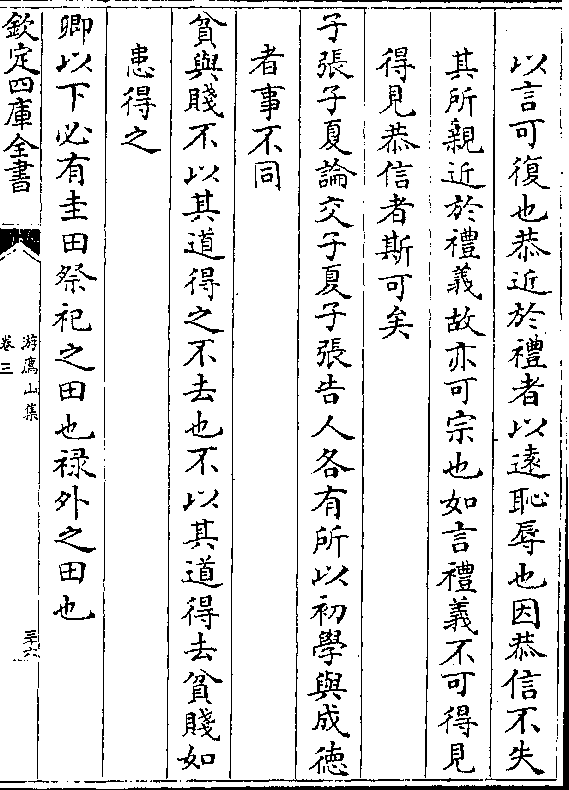 以言可復也恭近於禮者以遠恥辱也因恭信不失
其所親近於禮義故亦可宗也如言禮義不可得見
得見恭信者斯可矣
子張子夏論交子夏子張告人各有所以初學與成徳
者事不同
貧與賤不以其道得之不去也不以其道得去貧賤如
患得之
卿以下必有圭田祭祀之田也禄外之田也
欽定四庫全書
游廌山集
卷三
三十六